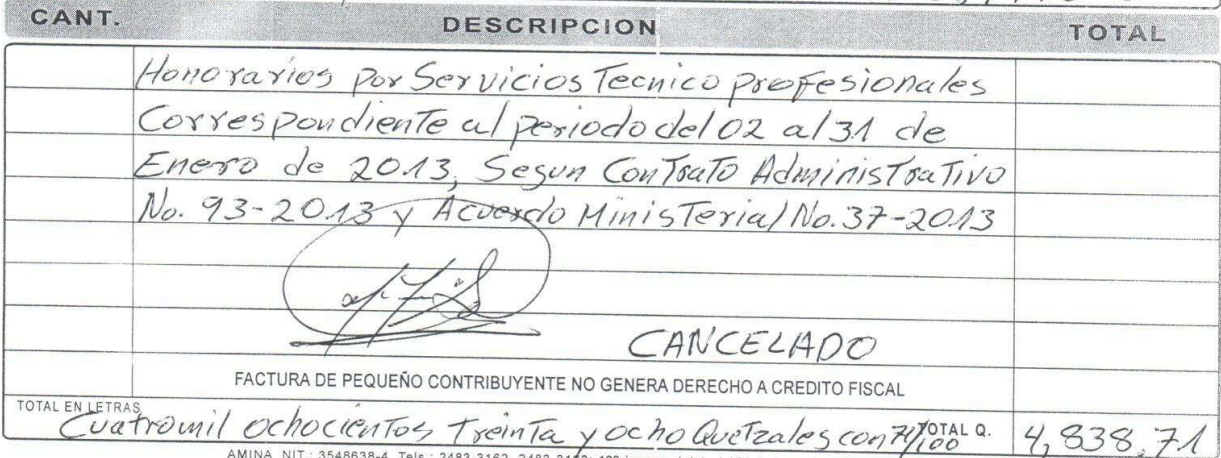 CANT. DESCRIPCION TOTAL
Honorarios por Servicios Tecnico profesionales
Correspondiente al periodo del 02 al 31 de
Enero de 2013, Segun Contrato Administrativo
No. 93-2013 y Acuerdo Ministerial No. 37-2013
CANCELADO
FACTURA DE PEQUEÑO CONTRIBUYENTE NO GENERA DERECHO A CREDITO FISCAL
TOTAL EN LETRAS Cuatromil ochocientos Treinta y ocho Quetzales con 71/100 TOTAL Q. 4,838.71
AMINA NIT.: 3548638-4 Tels.: 2483-3162